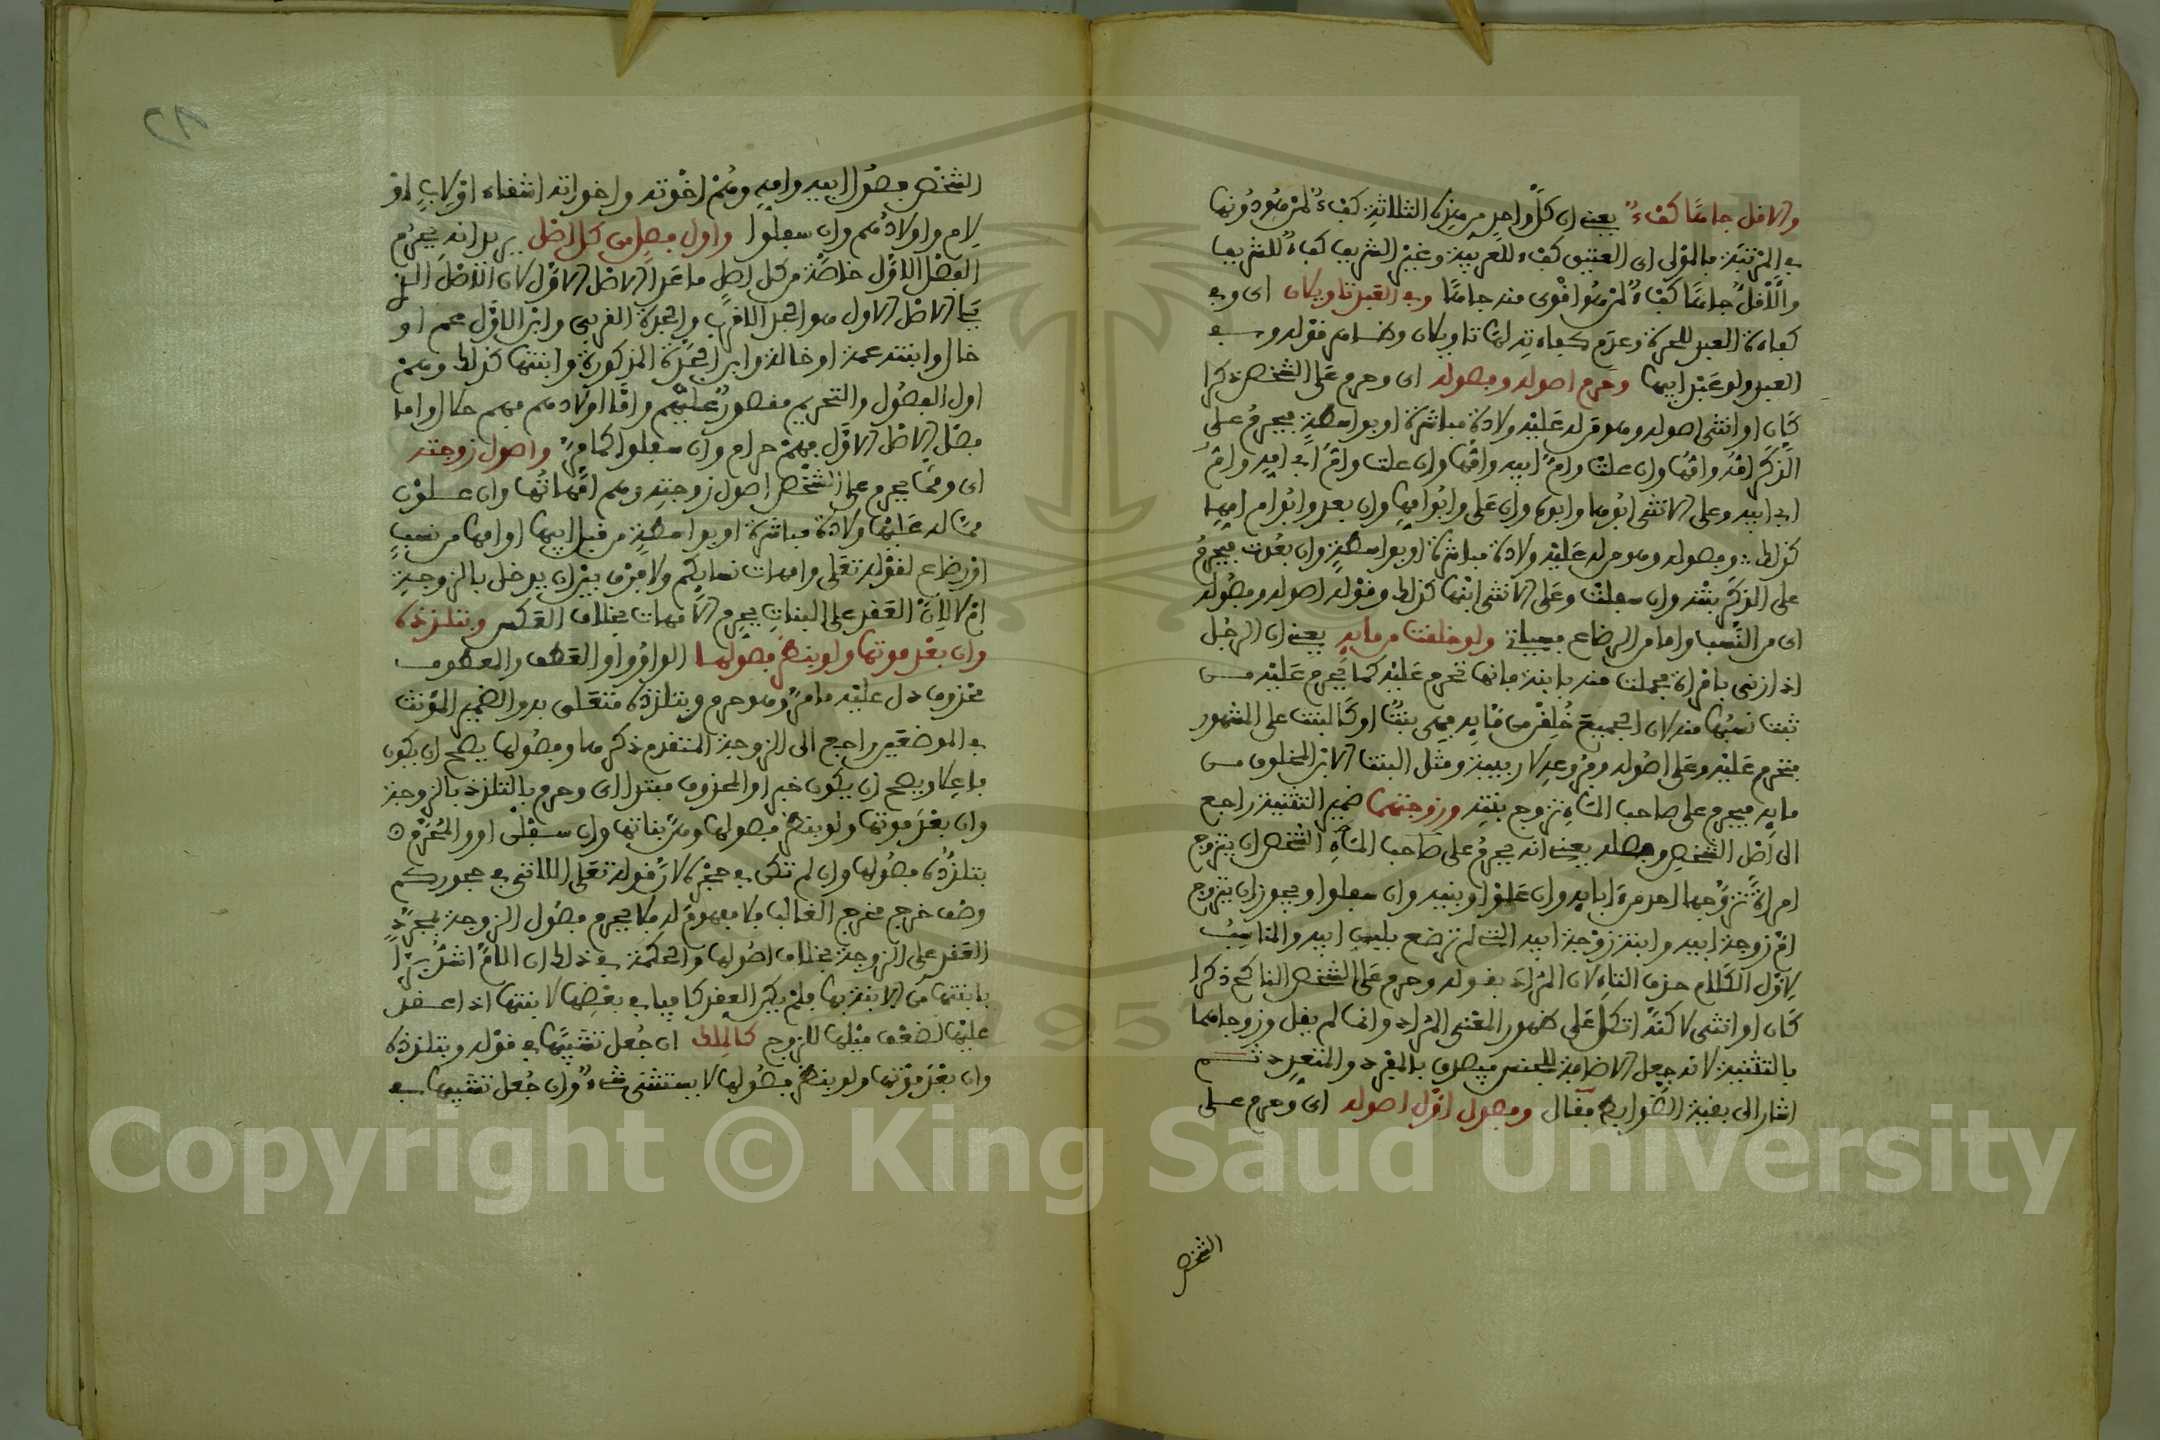 والاقل جاها كفء يعني ان كل واحد من هذه الثلاثة كفء لمن هو دونها
في المرتبة فالمولى اي العتيق كفء للعربية وغير الشريف كفء للشريف
والاقل جاها كفء لمن هو اقوى منه جاها وفي العبد تاويلان اي وفي
كفاءة العبد للحرة وعدم كفاءته لها تاويلان وظاهر قوله وفي
العبد ولو عبد ابيها وحرم اصوله وفصوله اي وحرم على الشخص ذكرا
كان او انثى اصوله وهو من له عليه ولادة مباشرة او بواسطة فيحرم على
الذكر امه وامها وان علت وام ابيه وامها وان علت وام ابي امه وام
ابي ابيه وعلى الانثى ابوها وابوه وان علا وابو امها وان بعد وابو ام امها
كذلك وفصوله وهو من له عليه ولادة مباشرة او بواسطة وان بعدت فيحرم
على الذكر بنته وان سفلت وعلى الانثى ابنها كذلك وقوله اصوله وفصوله
اي من النسب واما من الرضاع فسياتي ولو خلقت من مائه يعني ان الرجل
اذا زنى بامراة فحملت منه بابنة فانها تحرم عليه كما يحرم عليه من
ثبت نسبها منه لان الجميع خلقن من مائه فهي بنت او كالبنت على المشهور
فتحرم عليه وعلى اصوله وفروعه لا ربيبة ومثل البنت الابن المخلوق من
مائه فيحرم على صاحب الماء تزوج بنته وزوجتهما ضمير التثنية راجع
الى اصل الشخص وفصله يعني انه يحرم على صاحب الماء الشخص ان يتزوج
امراة تزوجها احد من ابائه وان علوا وبنيه وان سفلوا ويجوز ان يتزوج
ام زوجة ابيه وابنة زوجة ابيه التي لم ترضع بلبن ابيه والمناسب
لاول الكلام حذف التاء لان المراد بقوله وحرم على الشخص الناكح ذكرا
كان او انثى لاكنه اتكل على ظهور المعنى المراد وانما لم يقل وزوجاهما
بالتثنية لانه جعل الاضافة للجنس فيصدق بالمفرد والمتعدد ثم
اشار الى بقية الضوابط فقال وفصول اول اصوله اي وحرم على
الشخص
الشخص فصول ابيه وامه وهم اخوته واخواته اشقاء او لاب او
لام واولادهم وان سفلوا واول فصل من كل اصل يريد انه يحرم
الفصل الاول خاصة من كل اصل ما عدا الاصل الاول لان الاصل الذي
يلي الاصل الاول هو الجد الاقرب والجدة القربى وابن الاول عم او
خال وابنته عمة او خالة وابن الجدة المذكورة وابنتها كذلك وهم
اول الفصول والتحريم مقصور عليهم واما اولادهم فهم حلال واما
فصل الاصل الاول فهم حرام وان سفلوا كما مر واصول زوجته
اي ومما يحرم على الشخص اصول زوجته وهم امهاتها وان علون
ممن له عليها ولادة مباشرة او بواسطة من قبل ابيها او امها من نسب
او رضاع لقوله تعلى وامهات نسايكم ولا فرق بين ان يدخل بالزوجة
ام لا لان العقد على البنات يحرم الامهات بخلاف العكس وبتلذذه
وان بعد موتها ولو بنظر فصولها الواو واو العطف والمعطوف
محذوف دل عليه ما مر وهو حرم وبتلذذه متعلق به والضمير المؤنث
في الموضعين راجع الى الزوجة المتقدم ذكرها وفصولها يصح ان يكون
فاعلا ويصح ان يكون خبرا والمحذوف مبتدا اي وحرم بالتلذذ بالزوجة
وان بعد موتها ولو بنظر فصولها وهن بناتها وان سفلن او والمحرم
بتلذذه فصولها وان لم تكن في حجره لان قوله تعلى اللاتي في حجوركم
وصف خرج مخرج الغالب فلا مفهوم له فلا يحرم فصول الزوجة بمجرد
العقد على الزوجة بخلاف اصولها والحكمة في ذلك ان الام اشد برا
بابنتها من الابنة بها فلم يكن العقد كافيا في بغضها لابنتها اذا عقد
عليها لضعف ميلها للزوج كالملك ان جعل تشبيها في قوله وبتلذذه
وان بعد موتها ولو بنظر فصولها لا يستثنى شيء وان جعل تشبيها في